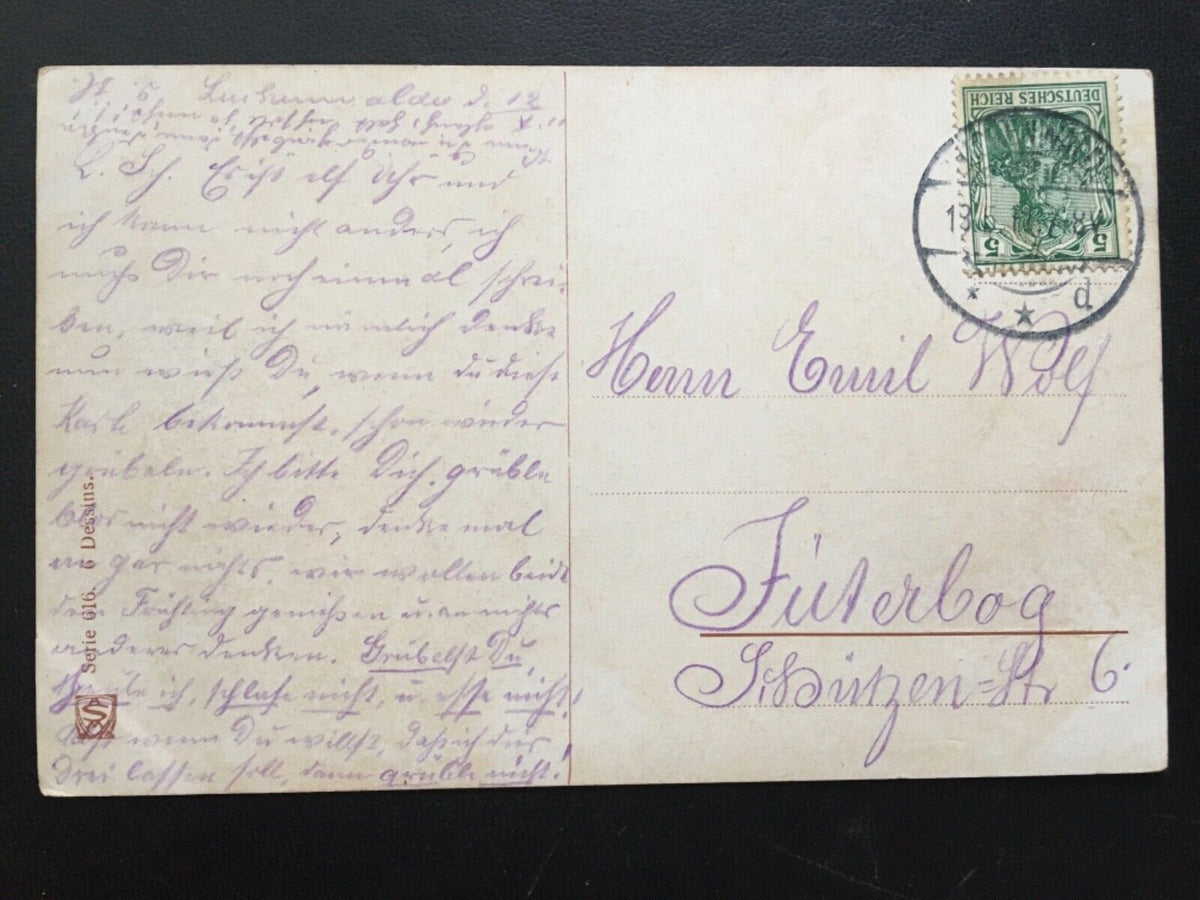 Luckenwalde d. 12
L. Sch. Es ist elf Uhr und
ich kann nicht anders, ich
muß Dir noch einmal schrei-
ben, weil ich nämlich denke
nun wirst Du, wenn du diese
Karte bekommst, schon wieder
grübeln. Ich bitte Dich, grüble
blos nicht wieder, denke mal
an gar nichts, wir wollen beide
den Frühling genießen u. an nichts
anderes denken. Grübelst Du,
ich, schlafe nicht, u. esse nicht,
wenn Du willst, daß ich das
lassen soll, dann grüble nicht!
Serie 616. 6 Dessins.
DEUTSCHES REICH
5 5
d
Herrn Emil Wolf
Jüterbog
Schützen-Str 6.